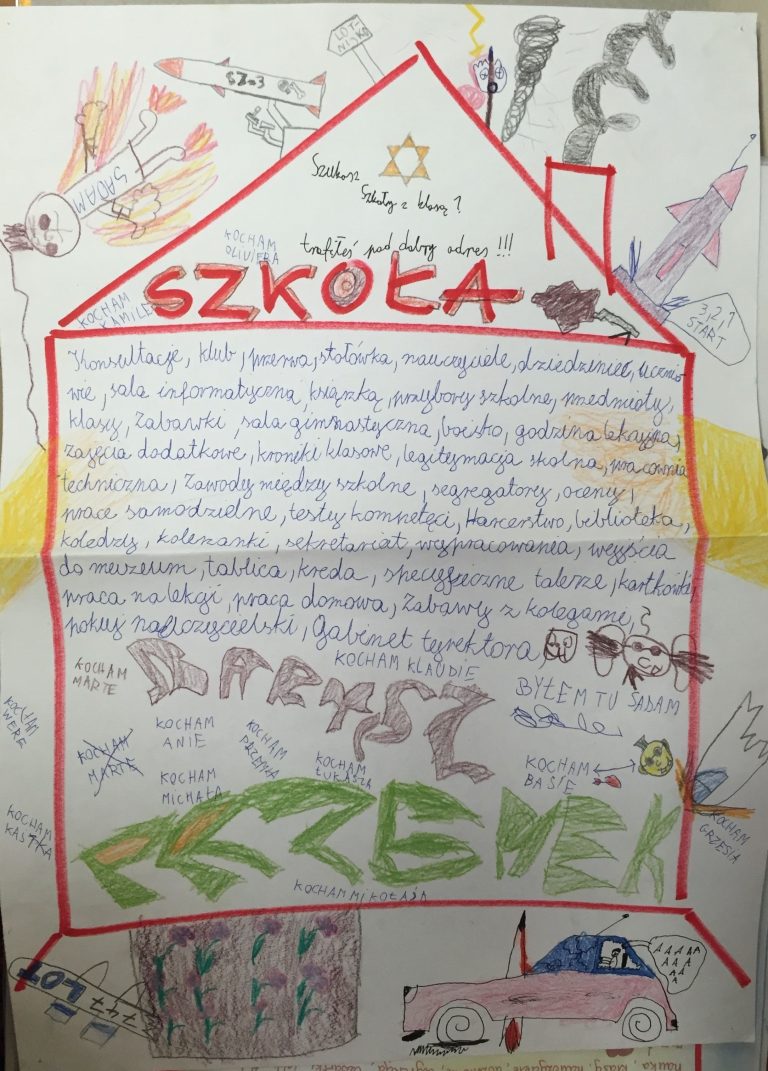 LOT-
NISKO
SZ-3
SADAM
Szukasz
Szkoły z klasą?
trafiłeś pod dobry adres!!!
KOCHAM
OLIWIERA
KOCHAM
KAMILE
SZKOŁA
3,2,1
START
Konsultacje, klub, przerwa, stołówka, nauczyciele, dziedziniec, ucznio
wie, sala informatyczna, książka, przybory szkolne, przedmioty,
klasy, Zabawki, sala gimnastyczna, boisko, godzina lekcyjna,
zajęcia dodatkowe, kroniki klasowe, legitymacja skolna, pracownia
techniczna, Zawody między szkolne, segregatory, oceny,
prace samodzielne, testy kompetęcji, Harcerstwo, biblioteka,
koledzy, koleżanki, sekretariat, wypracowania, wyjścia
do muzeum, tablica, kreda, specyficzne talerze, kartkówki,
praca na lekcji, praca domowa, Zabawy z kolegami,
pokuj nauczycielski, Gabinet dyrektora,
KOCHAM
MARTE
KOCHAM KLAUDIE
BYŁEM TU SADAM
KOCHAM
WERE
KOCHAM
MARTE
KOCHAM
ANIE
KOCHAM
PRZEMKA
KOCHAM
ŁUKASZA
KOCHAM
MICHAŁA
KOCHAM
BASIE
KOCHAM
KASTKA
KOCHAM
GRZESIA
KOCHAM MIKOŁAJA
LOT
747
AAAAA
AAA
AA
A